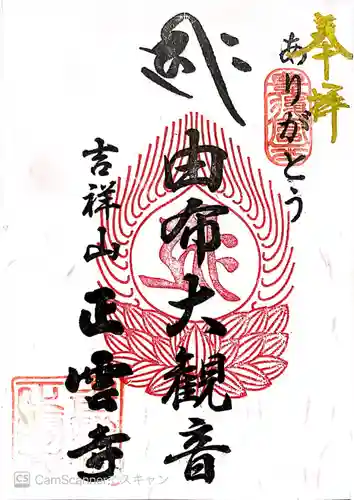 奉拝
ありがとう
由布大観音
吉祥山
正雲寺
CS CamScannerでスキャン